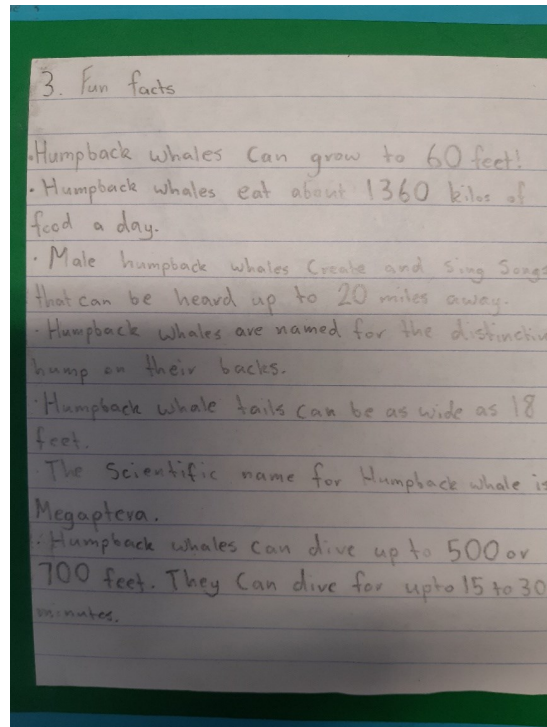 3. Fun facts
•Humpback whales can grow to 60 feet!
• Humpback whales eat about 1360 kilos of
food a day.
• Male humpback whales Create and Sing Songs
that can be heard up to 20 miles away.
• Humpback whales are named for the distinctiv
hump on their backs.
• Humpback whale tails can be as wide as 18
feet.
• The Scientific name for Humpback whale is
Megaptera.
• Humpback whales can dive up to 500 or
700 feet. They Can dive for upto 15 to 30
minutes.